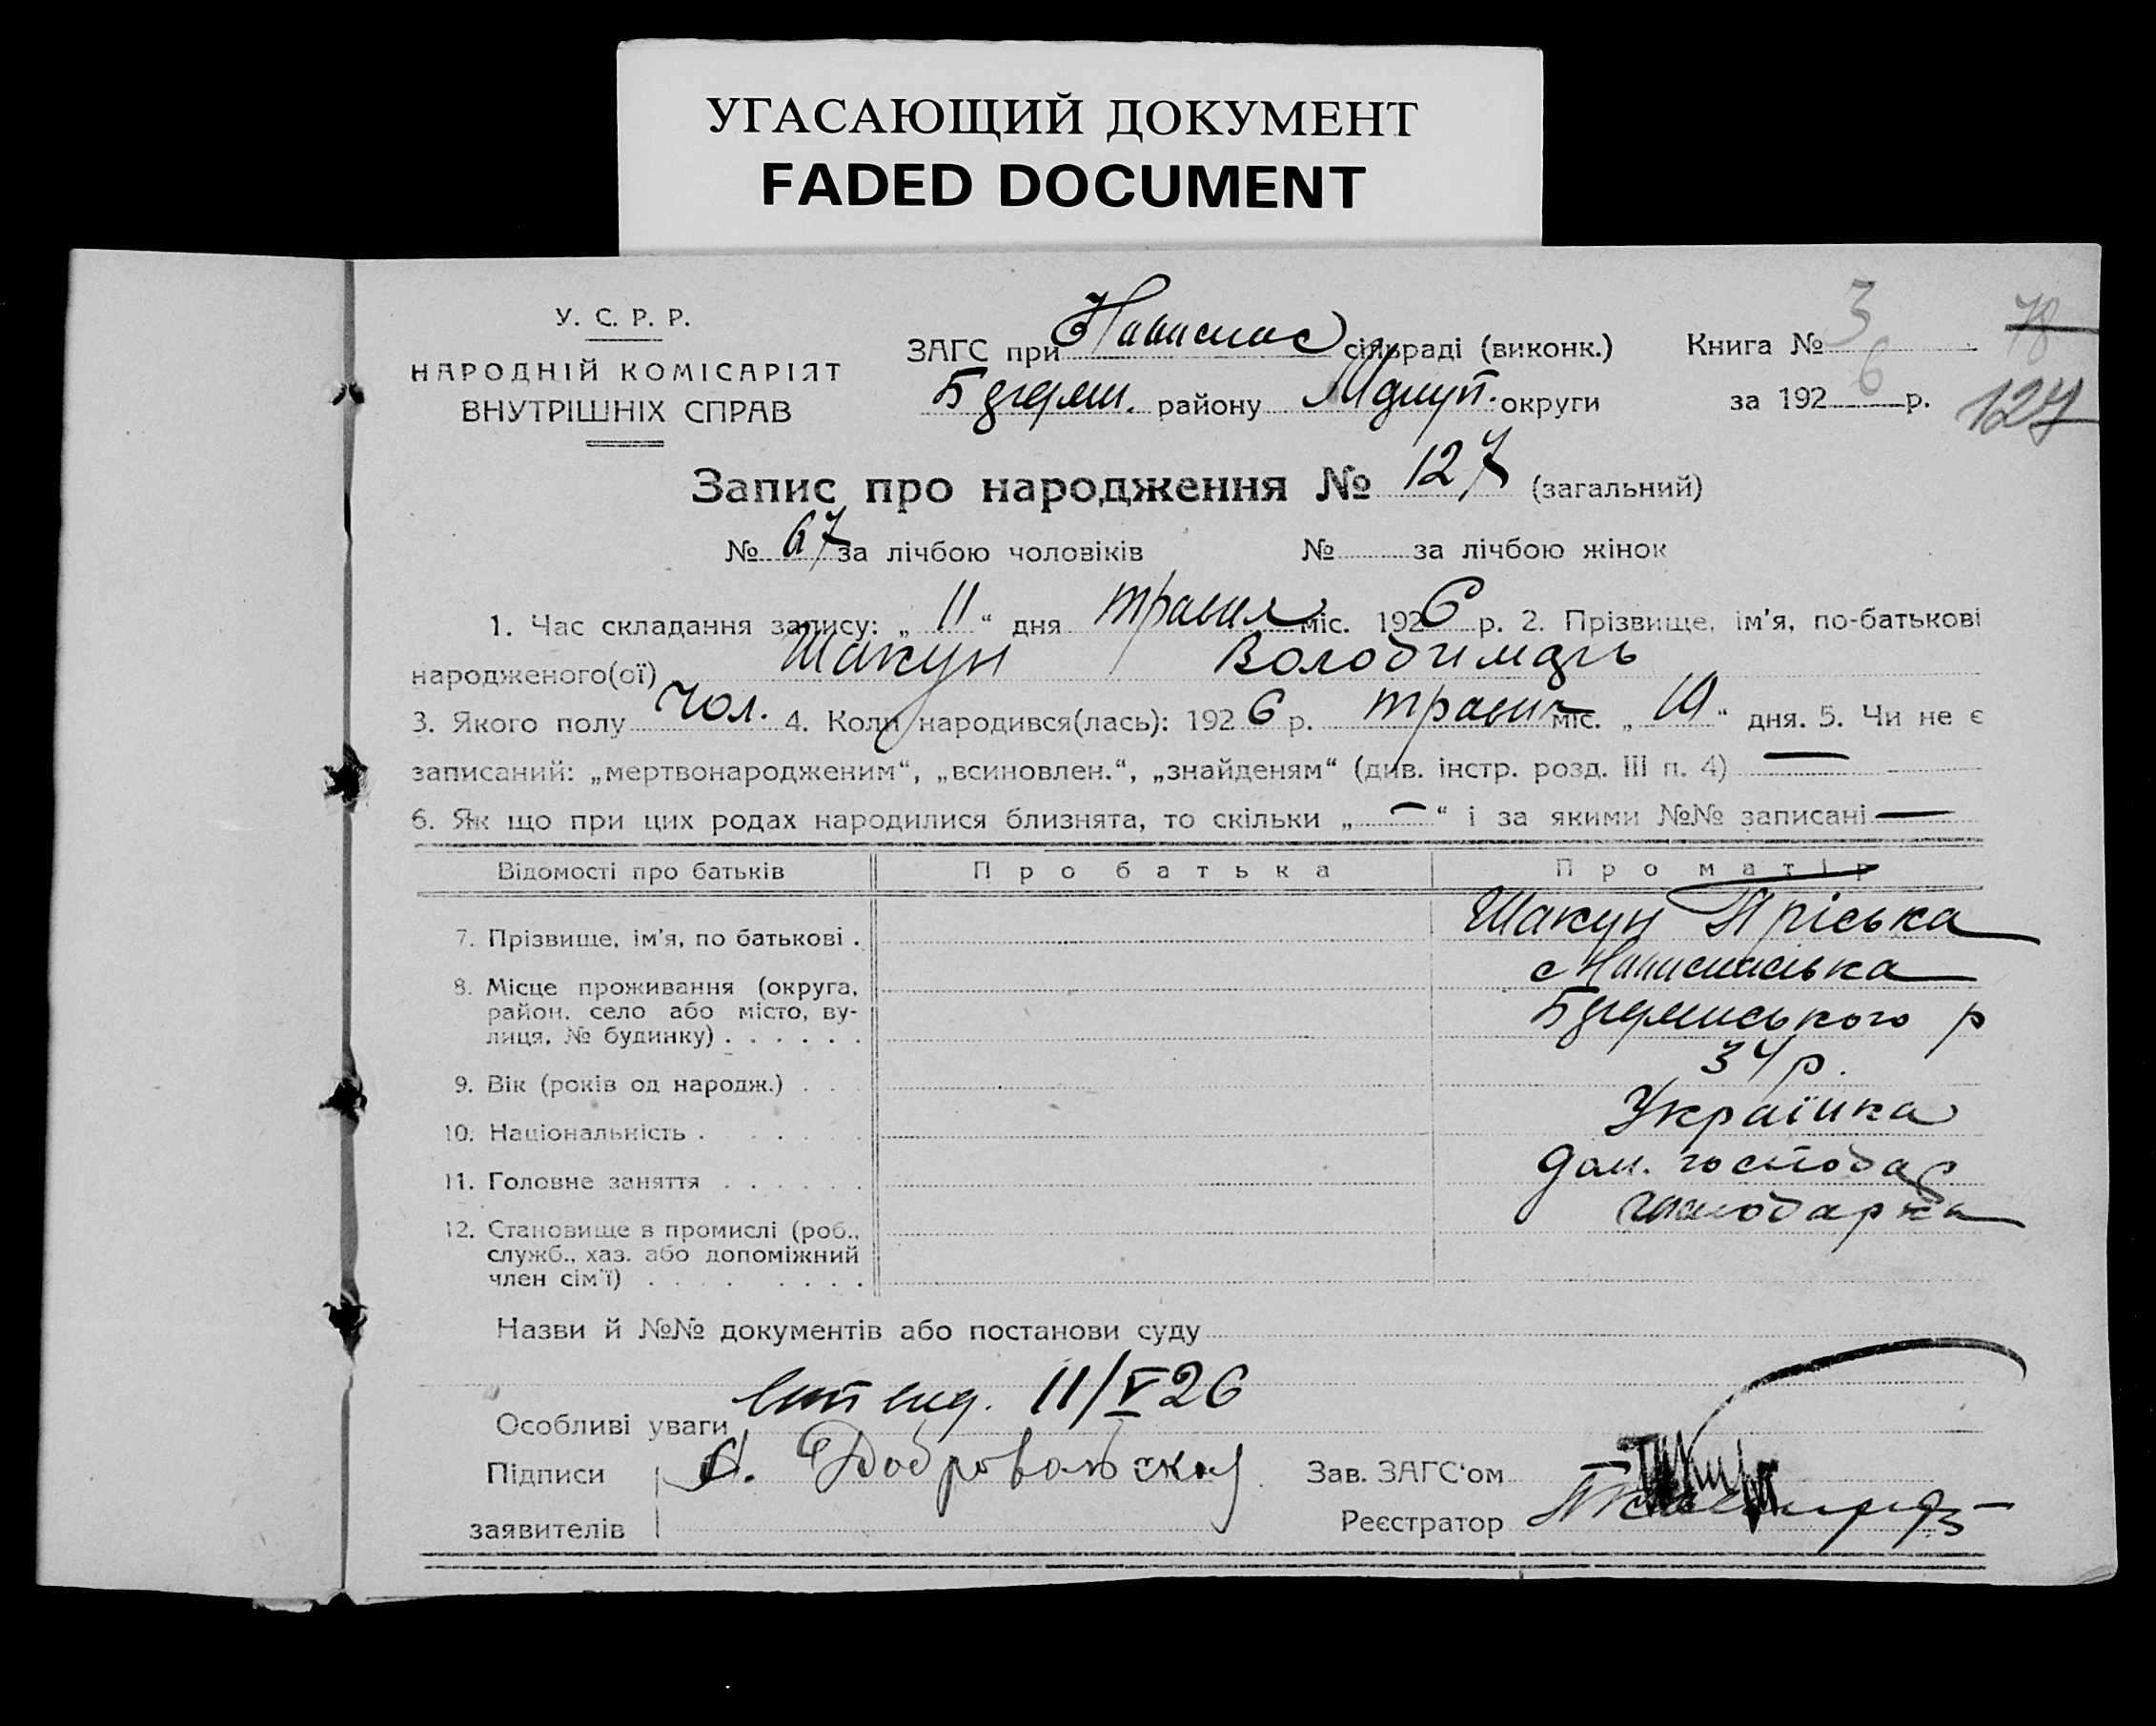 УГАСАЮЩИЙ ДОКУМЕНТ
FADED DOCUMENT
У. С. Р. Р.
НАРОДНІЙ КОМІСАРІЯТ
ВНУТРІШНІХ СПРАВ
ЗАГС при сільраді (виконк.)
району округи
Книга № 3
за 1926 р.
78
127
Запис про народження № 127 (загальний)
№ 67 за лічбою чоловіків № за лічбою жінок
1. Час складання запису: „ 11 “ дня травня міс. 1926 р. 2. Прізвище, ім'я, по-батькові
народженого(ої) Шакун Володимир
3. Якого полу чол. 4. Коли народився(лась): 1926 р. травня міс. „ “ дня. 5. Чи не є
записаний: „мертвонародженим“, „всиновлен.“, „знайденям“ (див. інстр. розд. III п. 4) —
6. Як що при цих родах народилися близнята, то скільки „ — “ і за якими №№ записані —
Відомості про батьків Про батька Про матір
7. Прізвище, ім'я, по батькові . Шакун Пріська
8. Місце проживання (округа,
район, село або місто, ву-
лиця, № будинку) . . . . . .
9. Вік (років од народж.) . . . 34 р.
10. Національність . . . . . . . Українка
11. Головне заняття . . . . . . дом. господар
12. Становище в промислі (роб.,
служб., хаз. або допоміжний
член сім'ї) . . . . . . . . господарка
Назви й №№ документів або постанови суду
Особливі уваги 11/V 26
Підписи
заявителів
Зав. ЗАГС'ом
Реєстратор